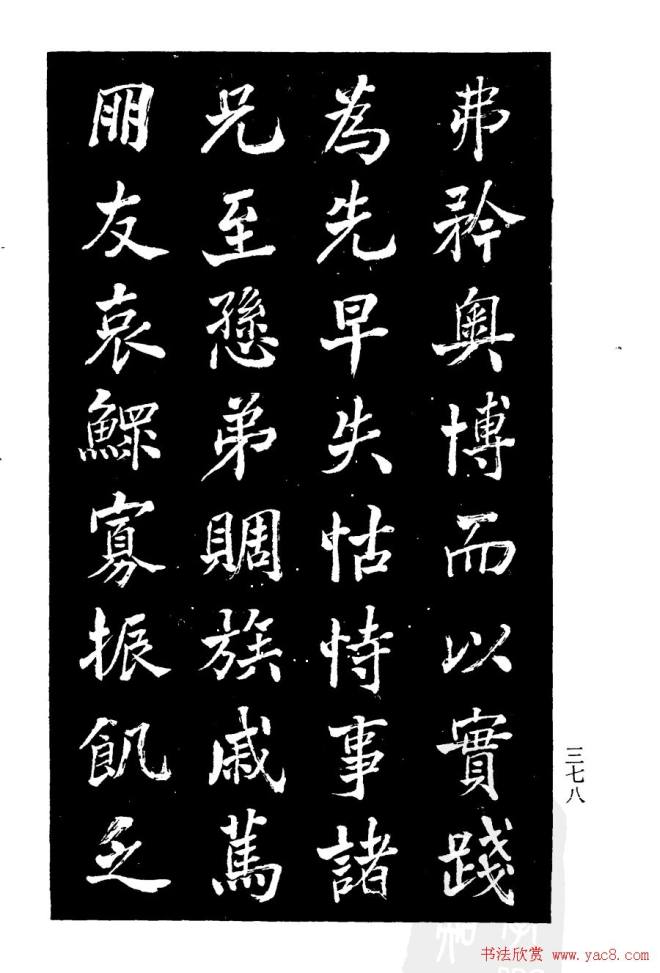 弗矜奧博而以實踐
為先早失怙恃事諸
兄至悫弟賙族戚篤
朋友哀鰥寡振飢乏
三七八
书法欣赏 www.yac8.com